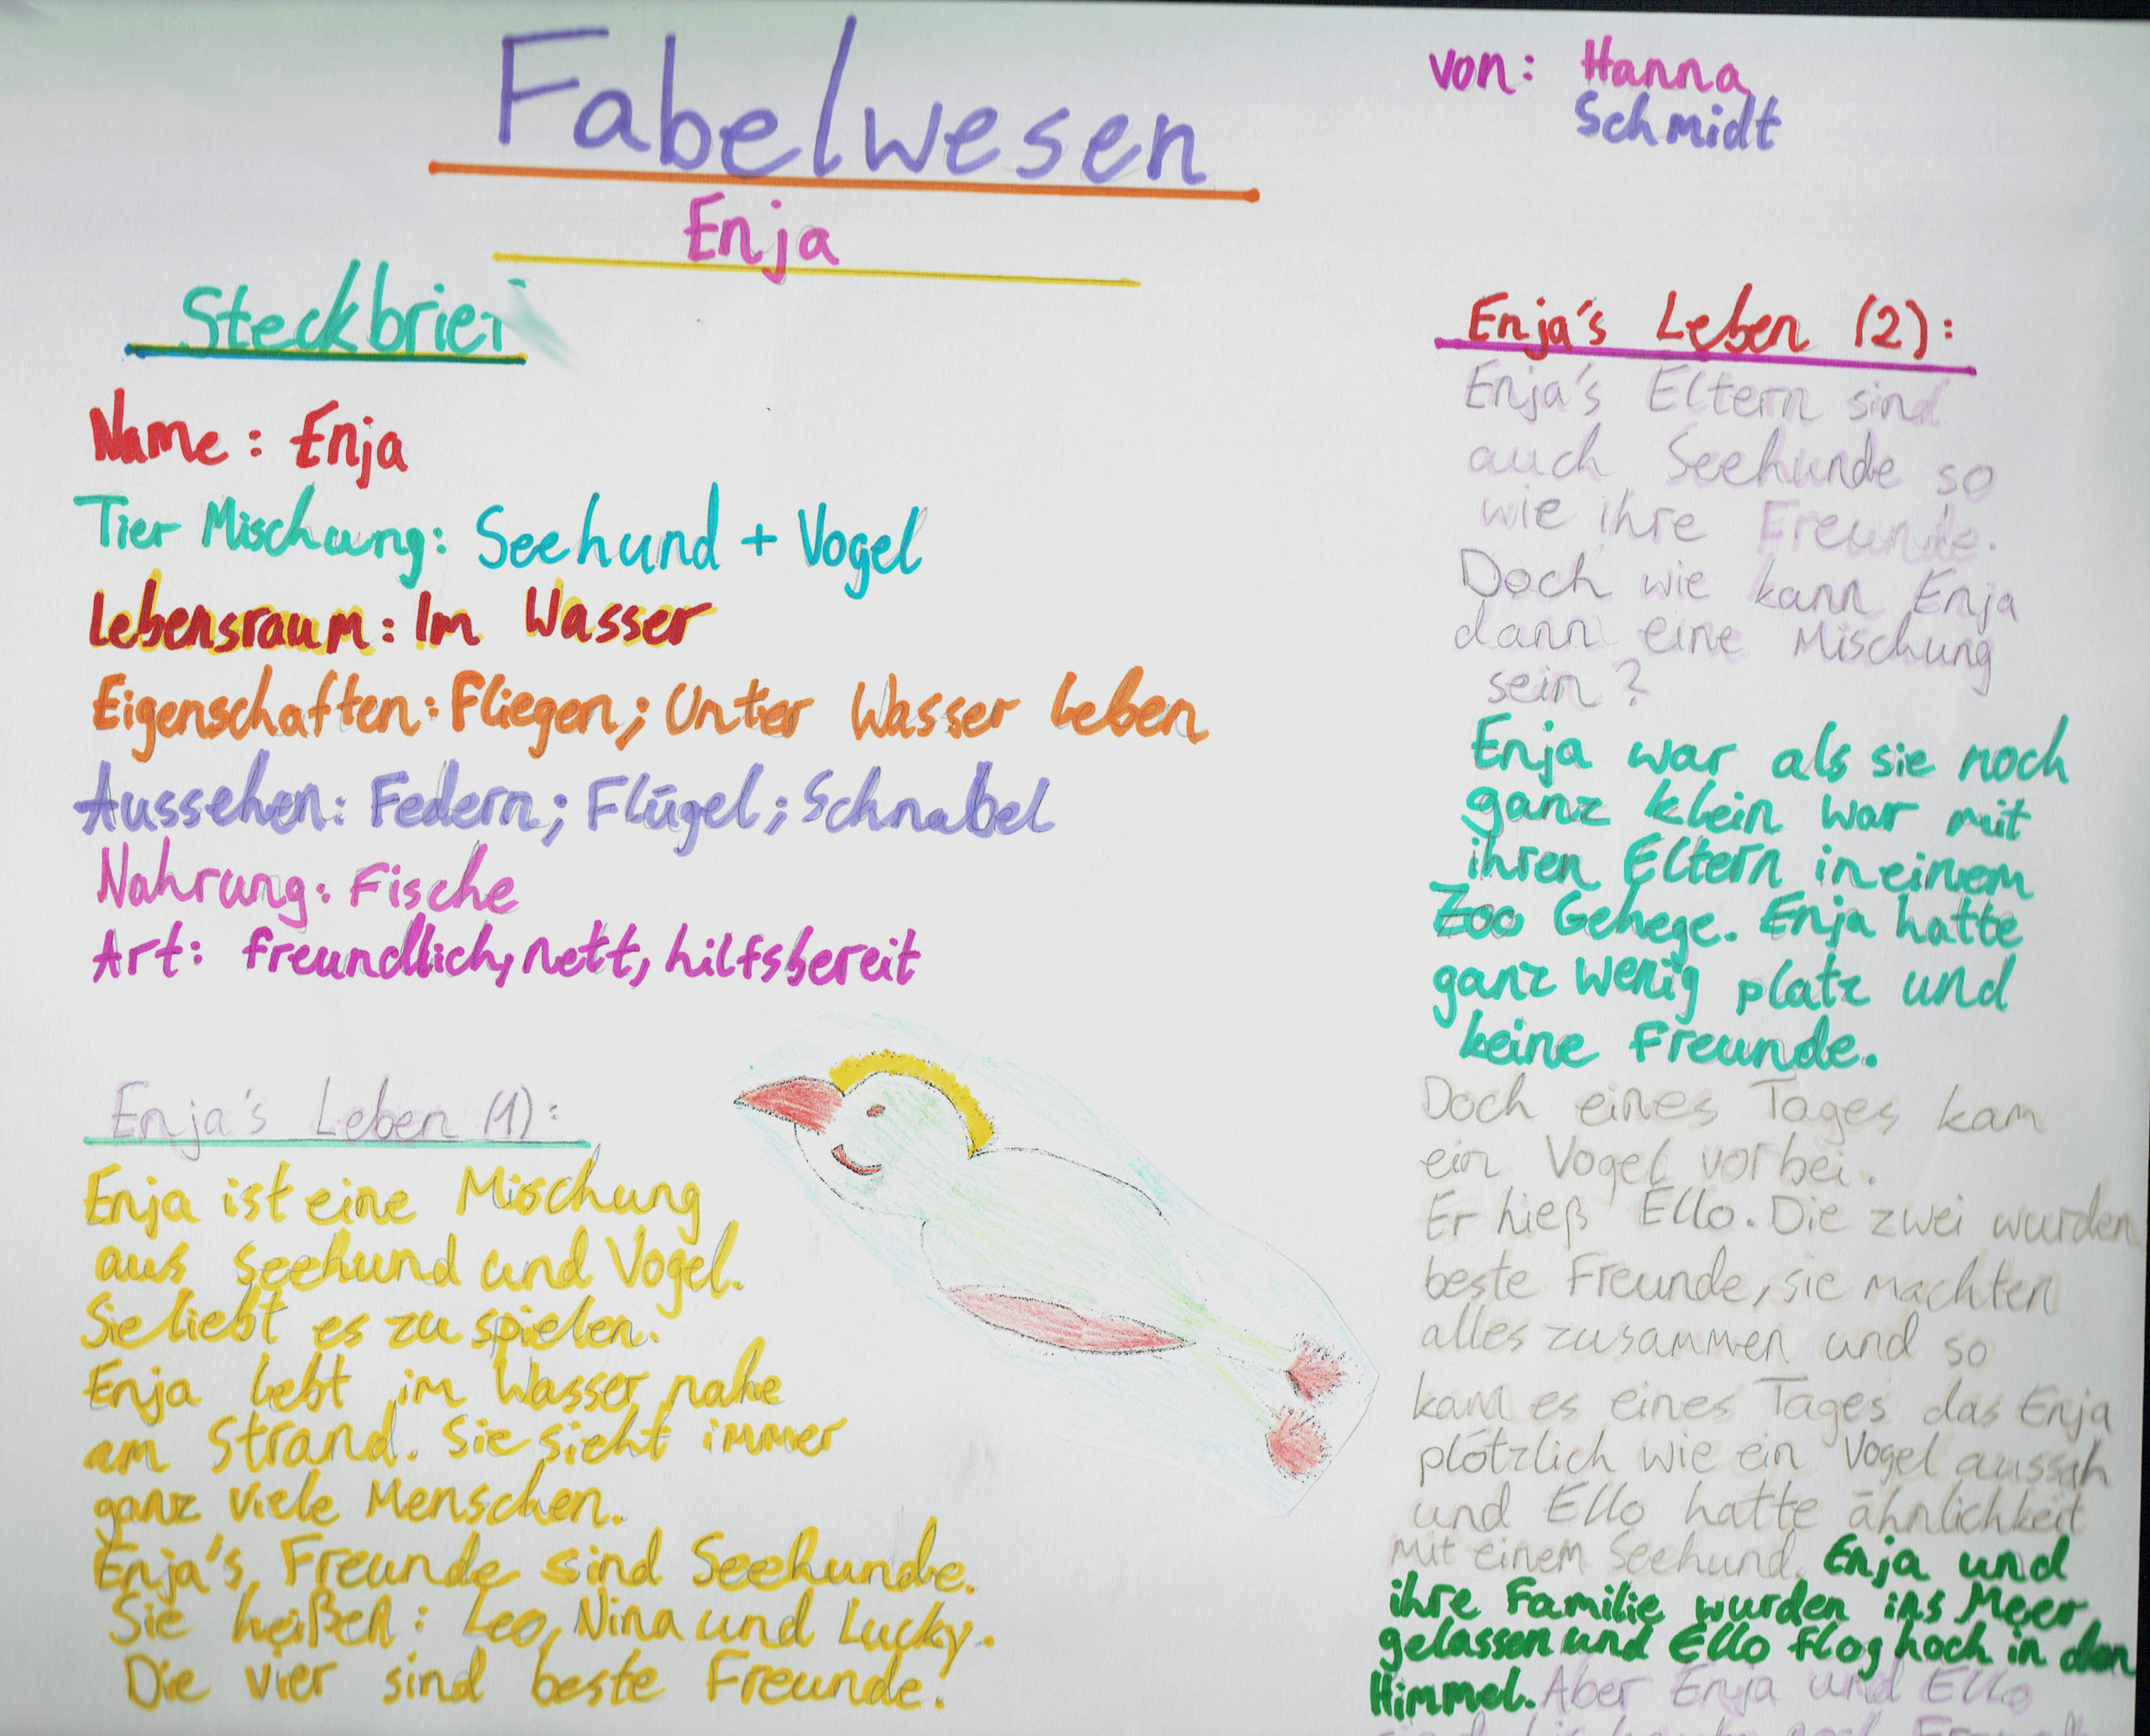 Fabelwesen
Enja
von: Hanna
Schmidt
Steckbrief
Name: Enja
Tier Mischung: Seehund + Vogel
Lebensraum: Im Wasser
Eigenschaften: Fliegen; Unter Wasser leben
Aussehen: Federn; Flügel; Schnabel
Nahrung: Fische
Art: freundlich, nett, hilfsbereit
Enja's Leben (1):
Enja ist eine Mischung
aus Seehund und Vogel.
Sie liebt es zu spielen.
Enja lebt im Wasser nahe
am Strand. Sie sieht immer
ganz viele Menschen.
Enja's Freunde sind Seehunde.
Sie heißen: Leo, Nina und Lucky.
Die vier sind beste Freunde.
Enja's Leben (2):
Enja's Eltern sind
auch Seehunde so
wie ihre Freunde.
Doch wie kann Enja
dann eine Mischung
sein?
Enja war als sie noch
ganz klein war mit
ihren Eltern in einem
Zoo Gehege. Enja hatte
ganz wenig platz und
keine Freunde.
Doch eines Tages kam
ein Vogel vorbei.
Er hieß Ello. Die zwei wurden
beste Freunde, sie machten
alles zusammen und so
kam es eines Tages das Enja
plötzlich wie ein Vogel aussah
und Ello hatte ähnlichkeit
mit einem Seehund. Enja und
ihre Familie wurden ins Meer
gelassen und Ello flog hoch in den
Himmel. Aber Enja und Ello